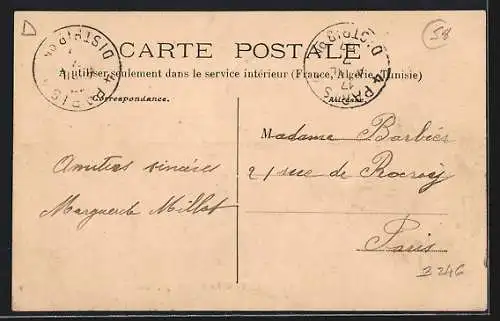 58
CARTE POSTALE
A utiliser seulement dans le service intérieur (France, Algérie, Tunisie)
Correspondance.
Adresse.
PARIS DISTRIBON
PARIS DISTRIBON
17
Madame Barbiés
Amitiés sincères
21 rue de Rocroy
Marguerite Millot
Paris
3246